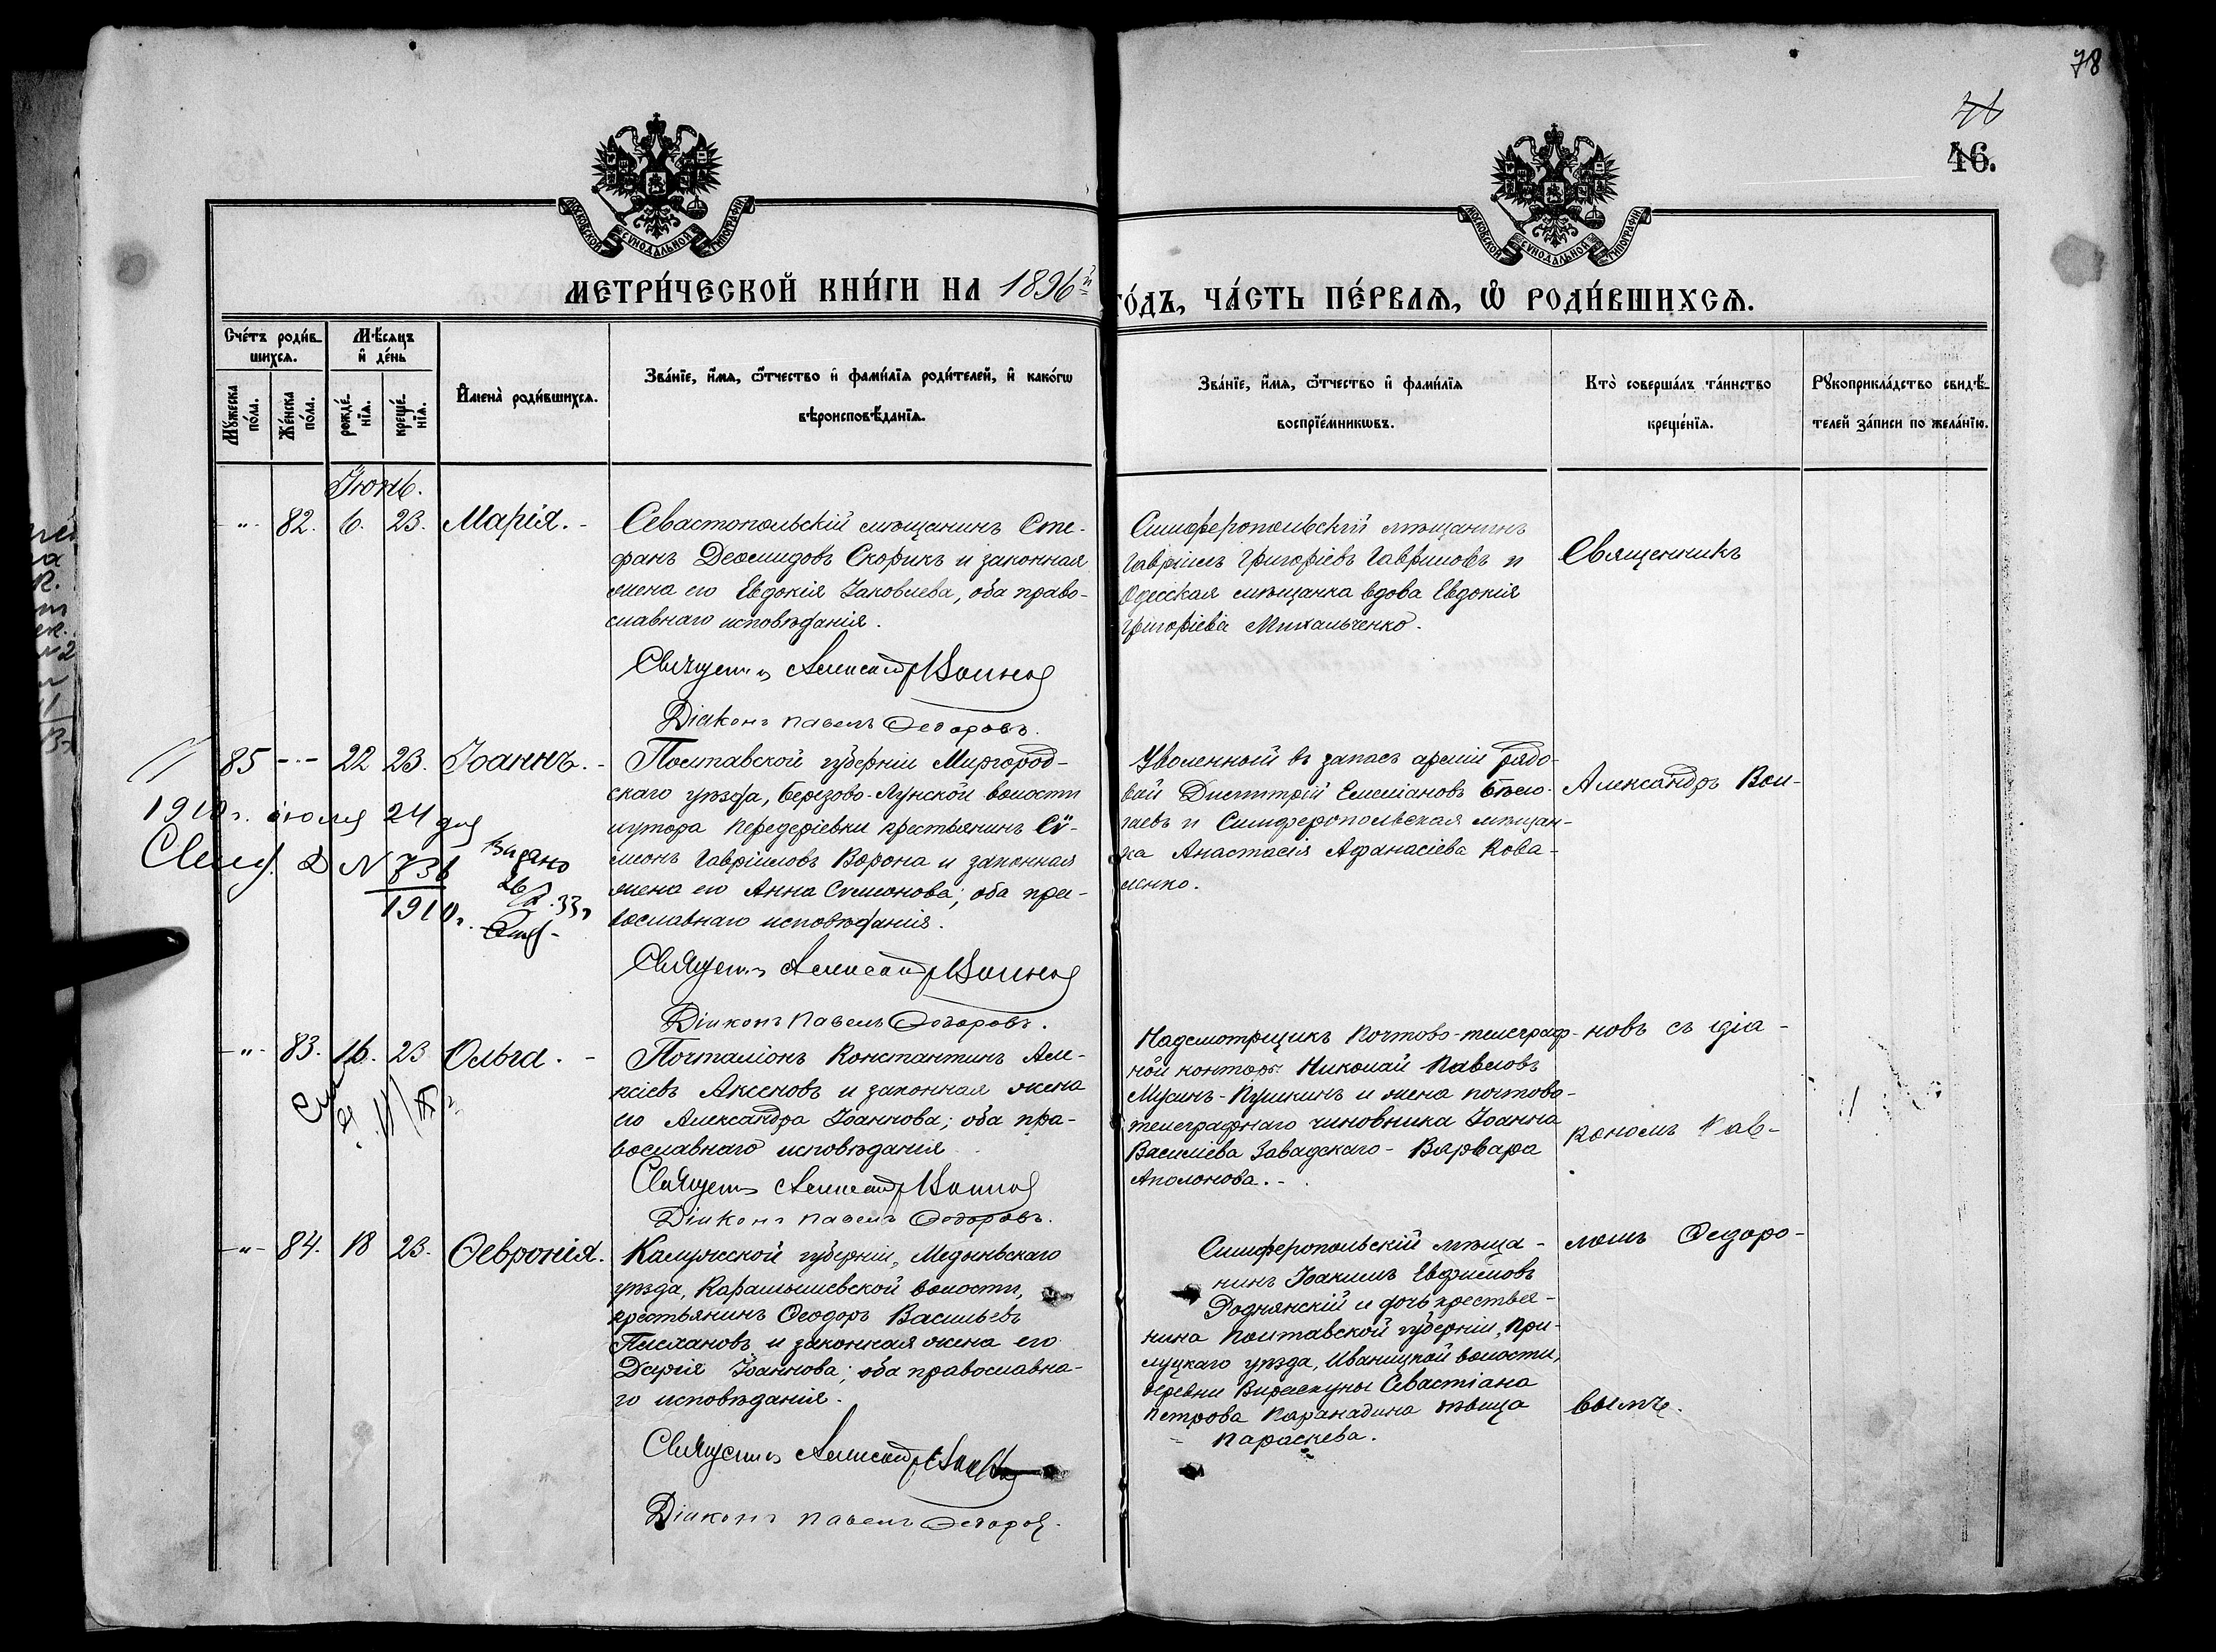 78
46.
МОСКОВСКОЙ СѴНОДАЛЬНОЙ ТИПОГРАФІИ
МОСКОВСКОЙ СѴНОДАЛЬНОЙ ТИПОГРАФІИ
МЕТРИ́ЧЕСКОЙ КНИ́ГИ НА 1896й
ГО́ДЪ, ЧА́СТЬ ПЕ́РВАѦ, Ѡ҆ РОДИ́ВШИХСѦ.
Сче́тъ роди́в-
шихсѧ.
Мѣ́сѧцъ
и҆ де́нь
Мꙋ́жеска по́ла.
Же́нска по́ла.
рожде́-нїѧ.
креще́-нїѧ.
И҆мена̀ роди́вшихсѧ.
Зва́нїе, и҆́мѧ, ѻ҆́тчество и҆ фами́лїѧ роди́телей, и҆ како́гѡ
вѣроисповѣ́данїѧ.
Зва́нїе, и҆́мѧ, ѻ҆́тчество и҆ фами́лїѧ
воспрїе́мникѡвъ.
Кто̀ соверша́лъ та́инство
креще́нїѧ.
Рꙋкоприкла́дство свидѣ́-
телей за́писи по жела́нїю.
Іюнь.
-"- 82. 6. 23. Марія. -
Севастопольскій мѣщанинъ Сте-
фанъ Деомидовъ Скорикъ и законная
жена его Евдокія Іаковлева, оба право-
славнаго исповѣданія.
Священ. Александръ Воиновъ
Діаконъ Павелъ Ѳедоровъ.
Симферопольскій мѣщанинъ
Гавріилъ Григоріевъ Гавриловъ и
Одесская мѣщанка вдова Евдокія
Григоріева Михальченко.
Священникъ
85 -"- 22 23. Іоаннъ. -
Полтавской губерніи Миргород-
скаго уѣзда, Березово-Лукской волости
хутора Передеріевки крестьянинъ Сѵ-
меонъ Гавріиловъ Ворона и законная
жена его Анна Симонова; оба пра-
вославнаго исповѣданія.
Священ. Александръ Воиновъ
Діаконъ Павелъ Ѳедоровъ.
Уволенный въ запасъ арміи рядо-
вой Димитрій Емеліановъ Бѣло-
паевъ и Симферопольская мѣщан-
ка Анастасія Афанасіева Кова-
ленко.
Александръ Вои-
1910 г. іюля 24 дня
№ 736
1910 г.
Видано
26/ 33 г
-"- 83. 16. 23 Ольга. -
Почталіонъ Константинъ Але-
ксіевъ Аксеновъ и законная жена
его Александра Іоаннова; оба пра-
вославнаго исповѣданія
Священ. Александръ Воиновъ
Діаконъ Павелъ Ѳедоровъ.
Надсмотрщикъ Почтово-телеграф-
ной конторы Николай Павловъ
Мусинъ-Пушкинъ и жена почтово-
телеграфнаго чиновника Іоанна
Василіева Завадскаго - Варвара
Аполонова. -
новъ съ діа-
кономъ Пав-
-"- 84. 18 23. Ѳевронія.
Калужской губерніи, Медынскаго
уѣзда, Карамышевской волости,
крестьянинъ Ѳеодоръ Васильевъ
и законная жена его
Дарія Іоаннова; оба православна-
го исповѣданія.
Священ. Александръ
Діаконъ Павелъ Ѳедоровъ.
Симферопольскій мѣща-
нинъ Іоакимъ Евфимовъ
Роднянскій и дочь крестья-
нина Полтавской губерніи, При-
луцкаго уѣзда, Иваницкой волости,
деревни Севастіана
Петрова дѣвица
Параскева.
ломъ Ѳедоро-
вымъ.